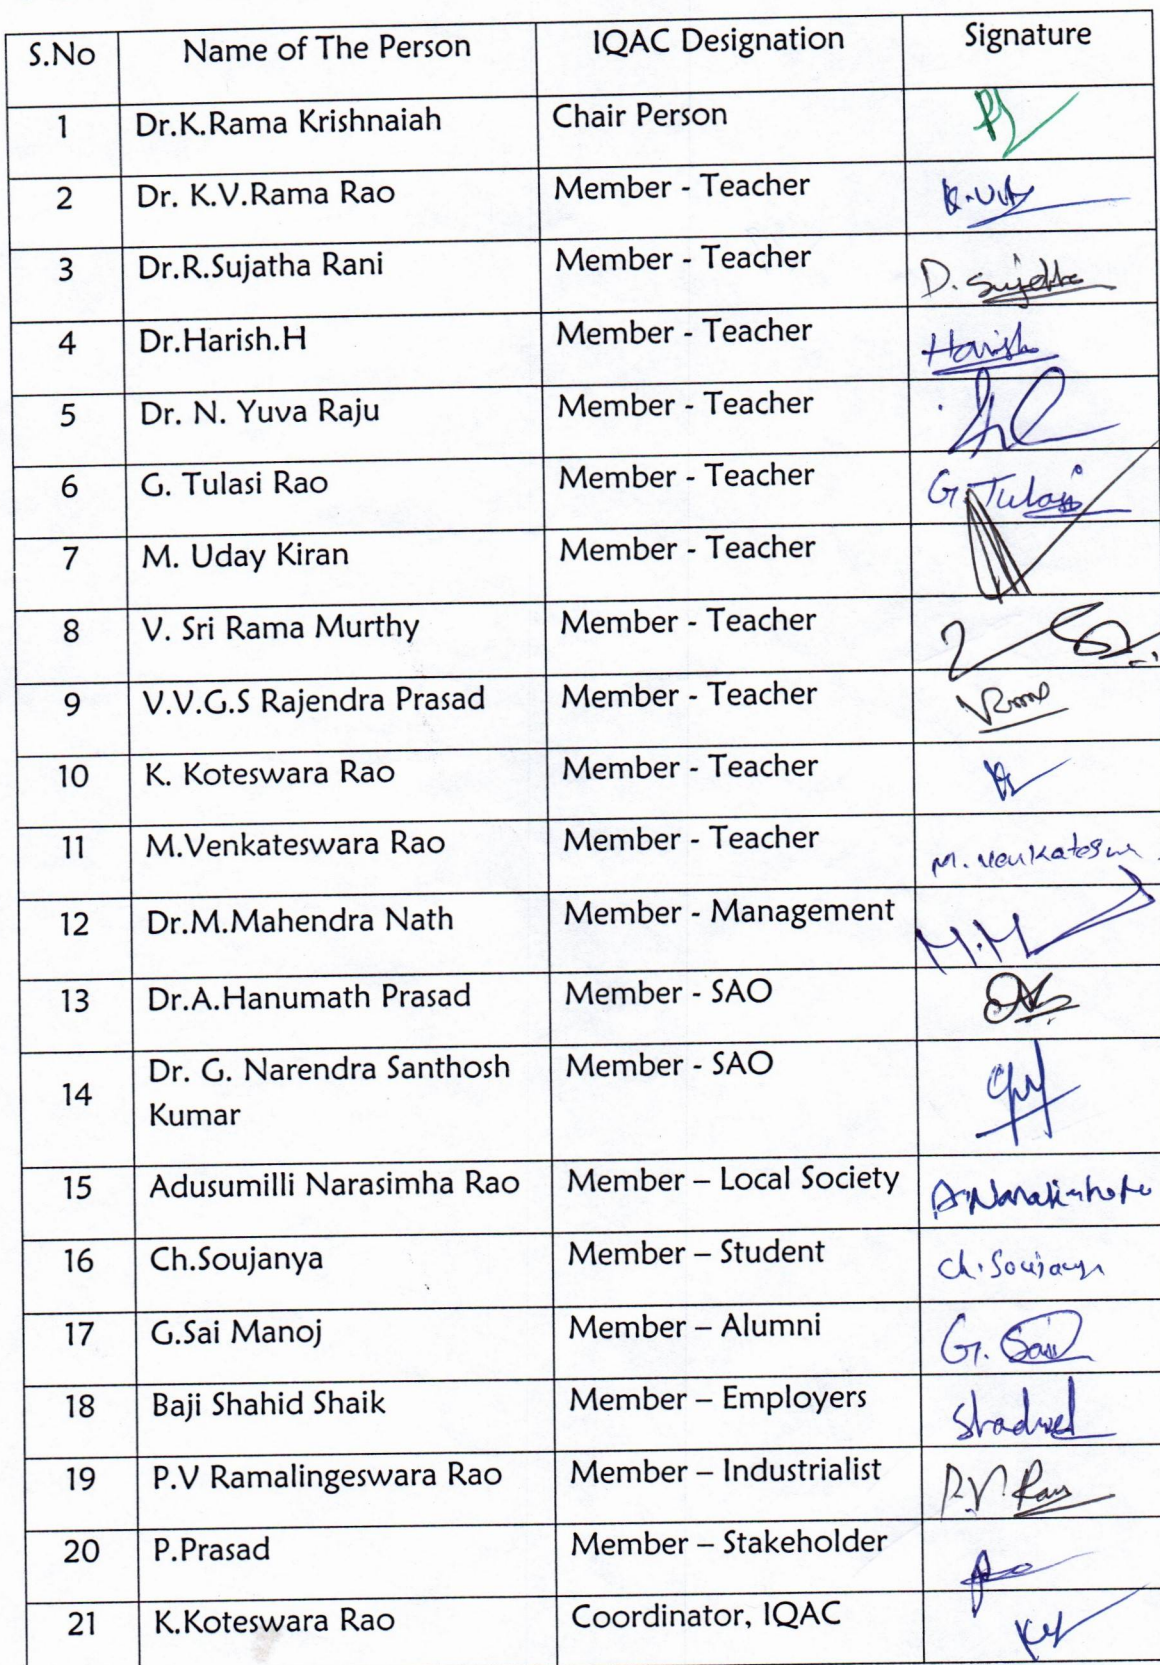 S.No Name of The Person IQAC Designation Signature
1 Dr.K.Rama Krishnaiah Chair Person
2 Dr. K.V.Rama Rao Member - Teacher
3 Dr.R.Sujatha Rani Member - Teacher D. Sujatha
4 Dr.Harish.H Member - Teacher Harish
5 Dr. N. Yuva Raju Member - Teacher
6 G. Tulasi Rao Member - Teacher G. Tulasi
7 M. Uday Kiran Member - Teacher
8 V. Sri Rama Murthy Member - Teacher
9 V.V.G.S Rajendra Prasad Member - Teacher
10 K. Koteswara Rao Member - Teacher
11 M.Venkateswara Rao Member - Teacher M. Venkateswa
12 Dr.M.Mahendra Nath Member - Management M.M
13 Dr.A.Hanumath Prasad Member - SAO
14 Dr. G. Narendra Santhosh Member - SAO
Kumar
15 Adusumilli Narasimha Rao Member – Local Society
16 Ch.Soujanya Member – Student Ch. Soujanya
17 G.Sai Manoj Member – Alumni G. Sai
18 Baji Shahid Shaik Member – Employers
19 P.V Ramalingeswara Rao Member – Industrialist P.V. Rao
20 P.Prasad Member – Stakeholder
21 K.Koteswara Rao Coordinator, IQAC